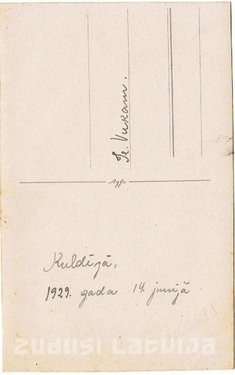 Fr. Vieram.
Kuldīgā,
1929. gada 14. junijā
ZUDUSI LATVIJA